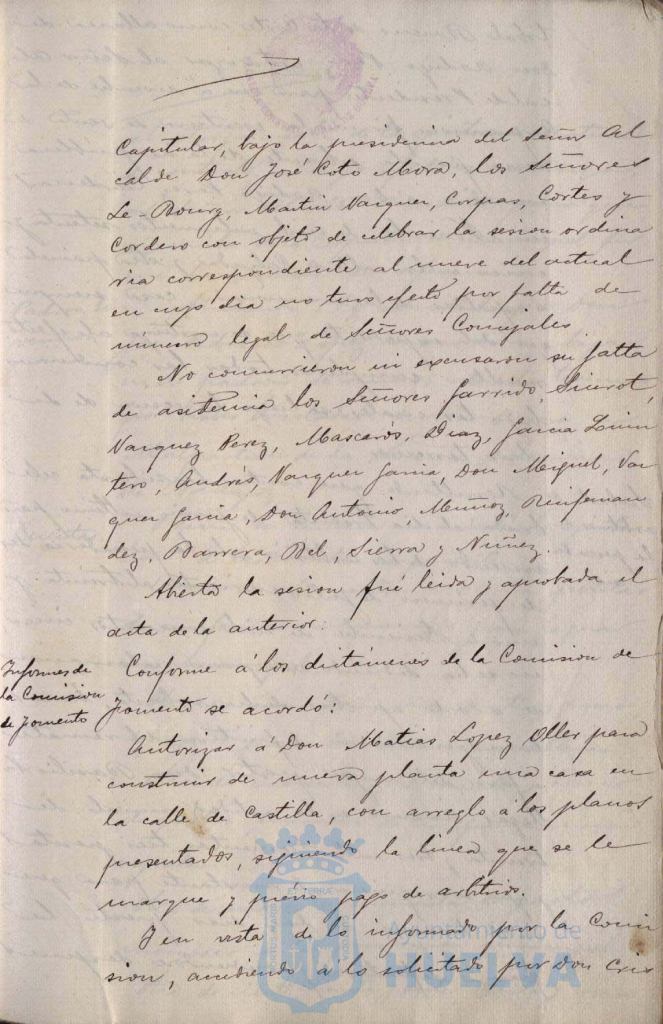 Capitular, bajo la presidencia del Señor Al
calde Don José Coto Mora, los Señores
Le-Bourg, Martin Vazquez, Corpas, Cortes y
Cordero con objeto de celebrar la sesion ordina
ria correspondiente al nueve del actual
en cuyo dia no tuvo efecto por falta de
número legal de Señores Concejales.
No concurrieron ni excusaron su falta
de asistencia los Señores Garrido, Siurot,
Vazquez Perez, Mascarós, Diaz, Garcia Quin
tero, Andrés, Vazquez Garcia, Don Miguel, Vaz
quez Garcia, Don Antonio, Muñoz,
dez, Barrera, Bel, Sierra y Nuñez.
Abierta la sesion fué leida y aprobada el
acta de la anterior.
Informes de
la Comision
de Fomento
Conforme á los dictámenes de la Comision de
Fomento se acordó:
Autorizar á Don Matias Lopez Oller para
construir de nueva planta una casa en
la calle de Castilla, con arreglo á los planos
presentados, siguiendo la linea que se le
marque y prévio pago de arbitrios.
Y en vista de lo informado por la Comi
sion, accediendo a lo solicitado por Don Cris
Ayuntamiento de
HUELVA